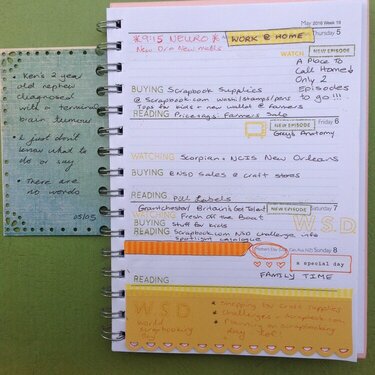 • Ken's 2 year
old nephew
diagnosed
with a terminal
brain tumour
• I just don't
know what to
do or say
• There are
no words
05/05
May 2016 Week 18
Thursday 5
9:15 NEURO
WORK @ HOME
New Oro New meds
WATCH
NEW EPISODE
A Place To
Call Home
Only 2
Episodes
to go!!!
BUYING Scrapbook Supplies
@ Scrapbook.com wash/stamps/pens
Tops for kids + new wallet @ Farmers
READING Pricetags: Farmers Sale
Friday 6
NEW EPISODE
Grey's Anatomy
WATCHING Scorpion + NCIS New Orleans
BUYING @ NSD Sales @ craft stores
READING Pill Labels
Saturday 7
NEW EPISODE
Grantchester/ Britain's Got Talent
Fresh Off the Boat
BUYING Stuff for kids
W.S.D
READING Scrapbook.com NSD Challenge info
Spotlight Catalogue
Sunday 8
a special day
FAMILY TIME
READING
W.S.D
World
Scrapbooking
Day